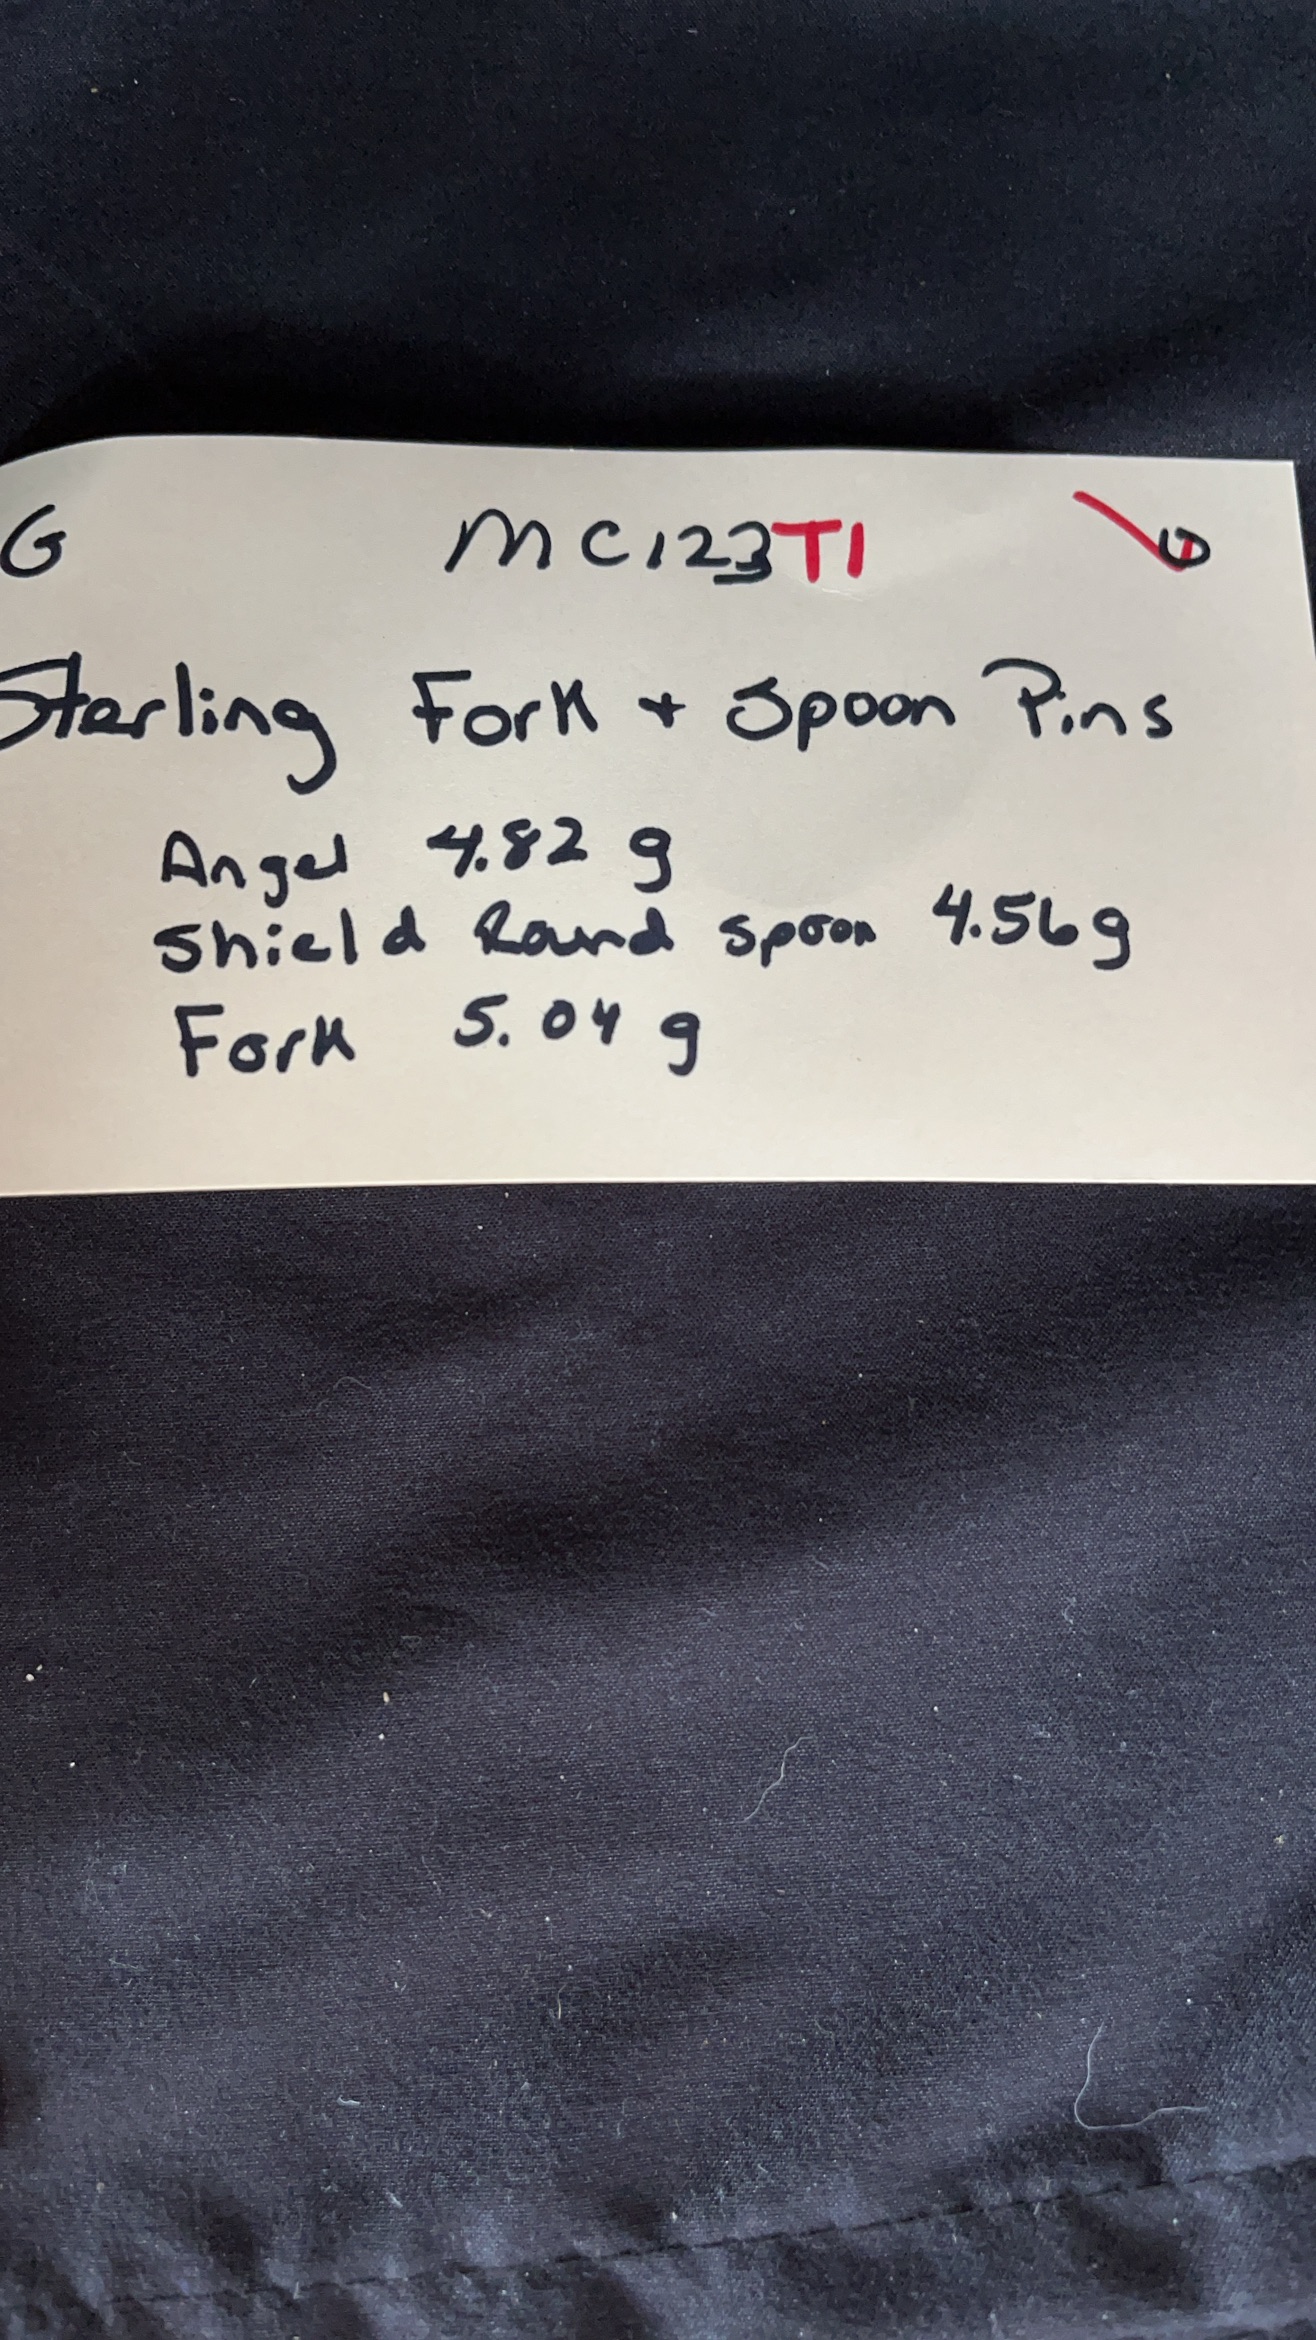 G MC123T1
Sterling Fork + Spoon Pins
Angel 4.82 g
Shield Round Spoon 4.56g
Fork 5.04 g